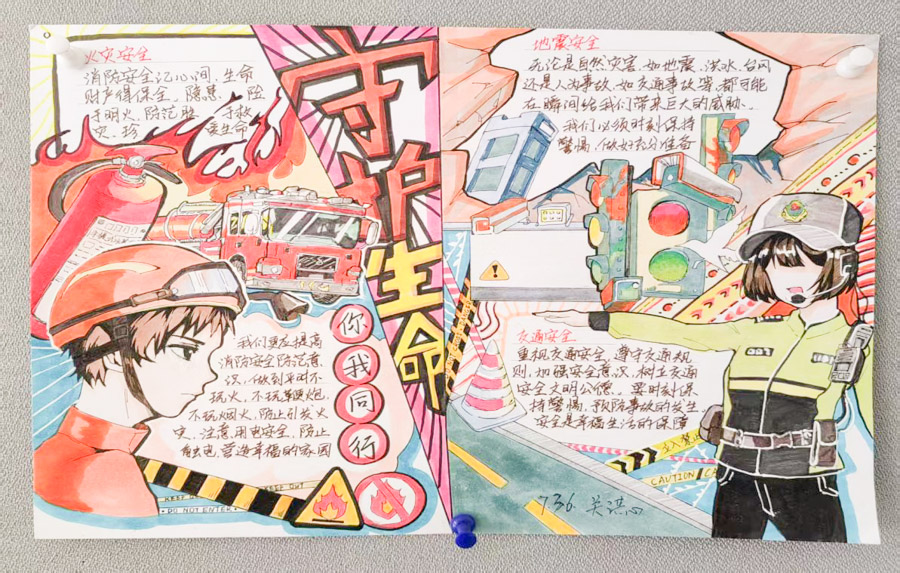 火灾安全
消防安全记心间,生命
财产得保全,隐患 险
于明火,防范胜 于救
灾,珍 爱生命
守护生命
我们更应提高
消防安全防范意
识,做到平时不
玩火,不玩鞭炮,
不玩烟火,防止引发火
灾,注意用电安全,防止
触电,营造幸福的家园
你
我
同
行
KEEP OUT
DO NOT ENTER
地震安全
无论是自然灾害,如地震、洪水、台风
还是人为事故,如交通事故等,都可能
在瞬间给我们带来巨大的威胁、
我们必须时刻保持
警惕,做好充分准备
交通安全
重视交通安全,遵守交通规
则,加强安全意识,树立交通
安全文明公德,要时刻保
持警惕,预防事故的发生
安全是幸福生活的保障
CAUTION
7.36